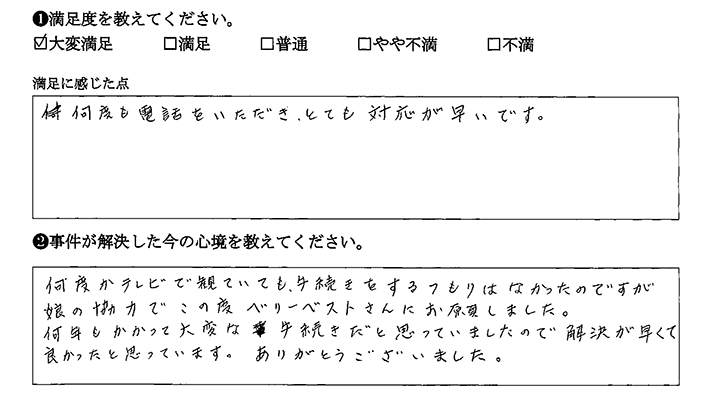 ❶満足度を教えてください。
☑大変満足 ☐満足 ☐普通 ☐やや不満 ☐不満
満足に感じた点
何度も電話をいただき、とても対応が早いです。
❷事件が解決した今の心境を教えてください。
何度かテレビで観ていても、手続きをするつもりはなかったのですが
娘の協力でこの度ベリーベストさんにお願しました。
何年もかかって大変な手続きだと思っていましたので解決が早くて
良かったと思っています。ありがとうございました。